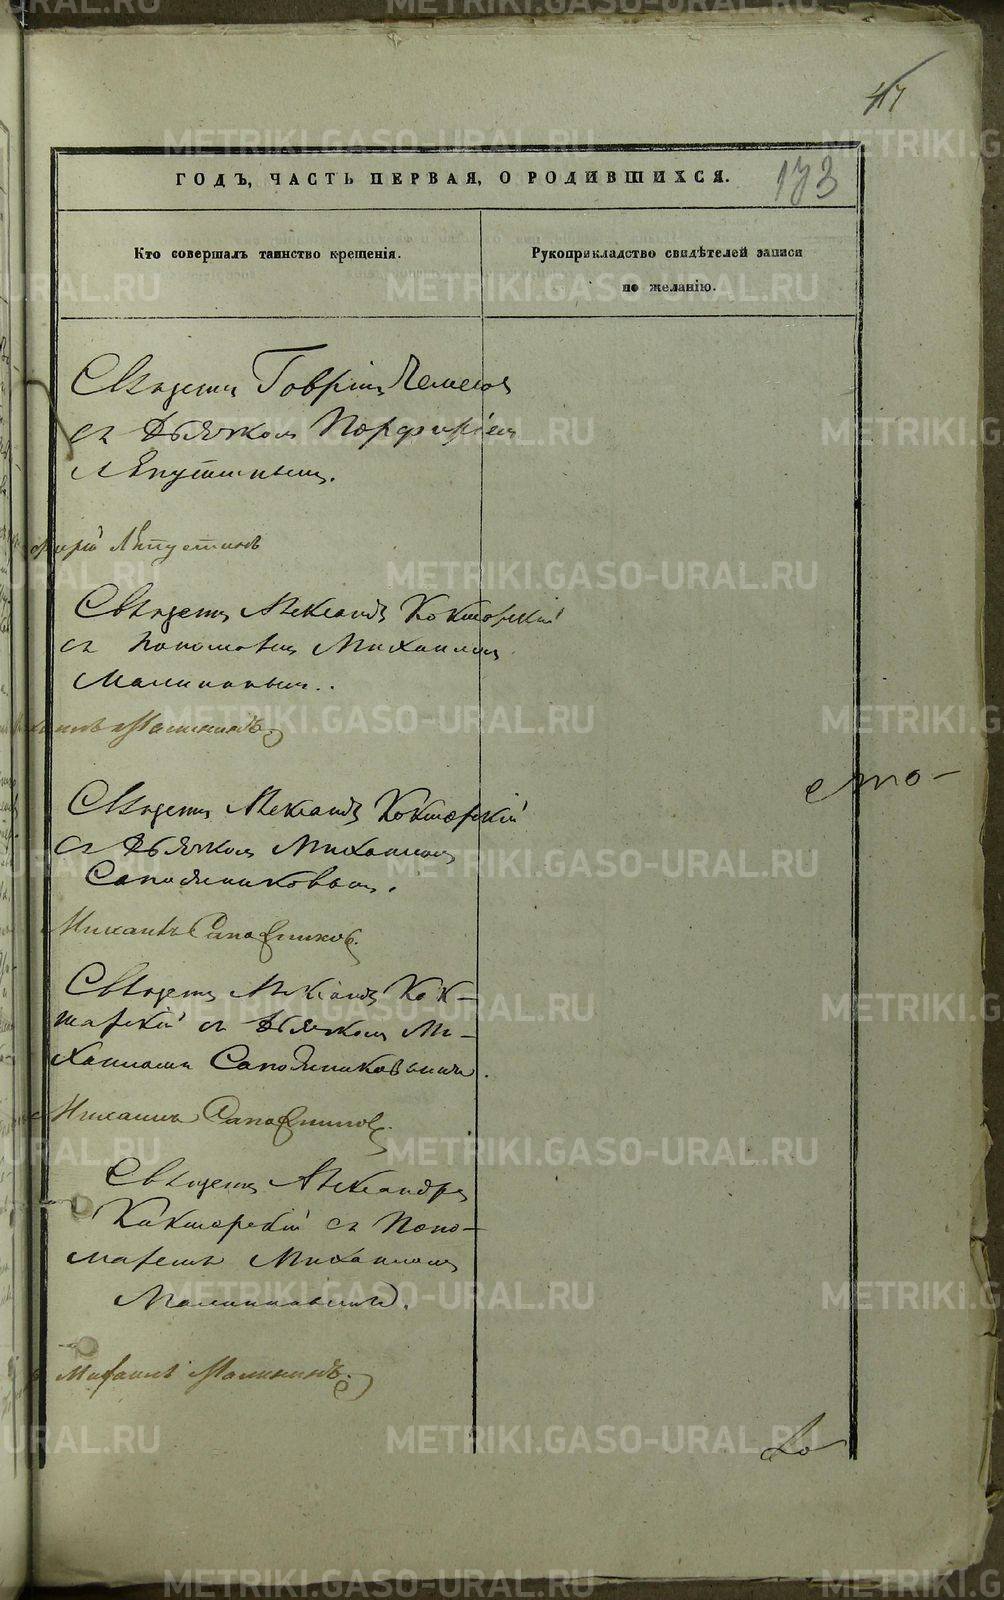 47
173
ГОДЪ, ЧАСТЬ ПЕРВАЯ, О РОДИВШИХСЯ.
Кто совершалъ таинство крещенія.
Рукоприкладство свидѣтелей записи
по желанію.
Священ
съ Дьячкомъ Порфиріем
Лѣпустинымъ.
Лѣпустинъ
Священ Александ Кокшарскій
съ Пономарем Михаиломъ
Малининым.
Малининъ.
Священ Александ Кокшарскій
съ Дьячком Михаилом
Сапожниковым.
Михаилъ Сапожников.
Священ Александ Кок-
шарскій съ Дьячком Ми-
хаиломъ Сапожниковымъ.
Михаилъ Сапожников.
Священ Александръ
Кокшарскій съ Поно-
маремъ Михаилом
Малининымъ.
Михаилъ Малининъ.
сто-
METRIKI.GASO-URAL.RU